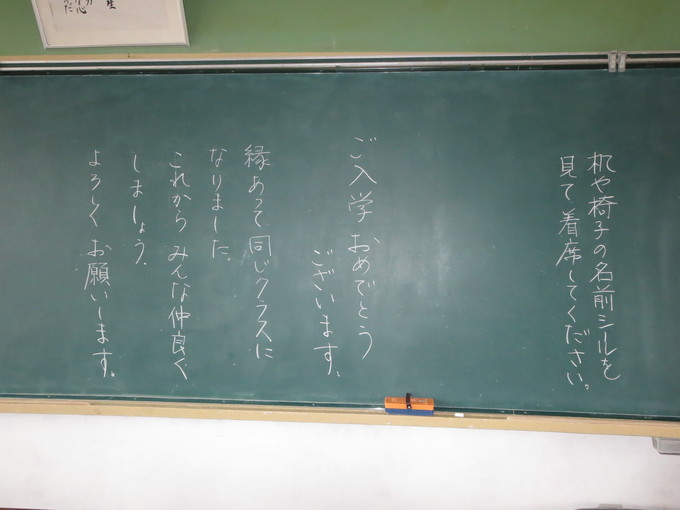 机や椅子の名前シールを
見て着席してください。
ご入学おめでとう
ございます。
縁あって同じクラスに
なりました。
これからみんな仲良く
しましょう。
よろしくお願いします。